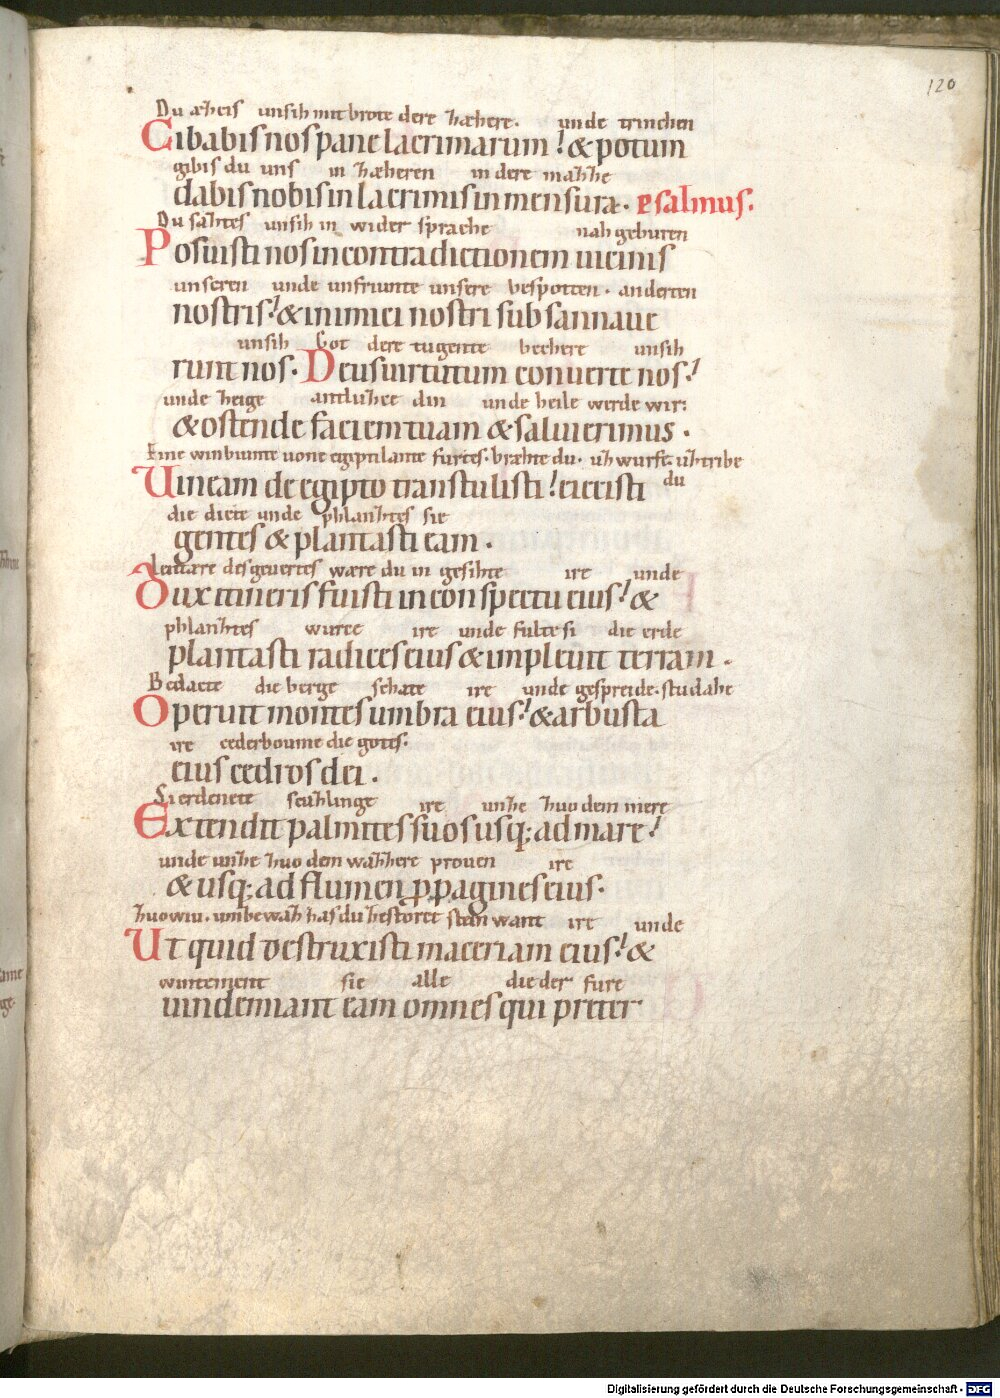 120
Du æzeis unsih mit brote dere zæhere. unde trinchen
Cibabis nos pane lacrimarum! & potum
gibis du uns in zæheren in dere mazze
dabis nobis in lacrimis in mensura. Psalmus.
Du saztes unsih in wider sprache nahgeburen
Posuisti nos in contradictionem uicinis
unseren unde unfriunte unsere bespotten. anderten
nostris! & inimici nostri subsannaue
unsih Got dere tugente bechere unsih
runt nos. Deus uirtutum conuerte nos!
unde zeige antluzce din unde heile werde wir:
& ostende faciem tuam & salui erimus.
Eine winbiunte uone egiptilante furtes. bræhte du. uz wurft. uztribe
Uineam de egipto transtulisti! eiecisti du
die diete unde phlanztes sie
gentes & plantasti eam.
Leitare des geuertes wære du in gesihte ire unde
Dux itineris fuisti in conspectu eius! &
phlanztes wurce ire unde fulte si die erde
plantasti radices eius & impleuit terram.
Bedacte die berge schate ire unde gespreide. studahe
Operuit montes umbra eius! & arbusta
ire cederboume die gotis.
eius cedros dei.
Si erdenete scuzlinge ire unze zuo dem mere
Extendit palmites suos usq; ad mare!
unde unze zuo dem wazzere prouen ire
& usq; ad flumen ppagines eius.
zuowiu. umbe waz has du zestoret stein want ire unde
Ut quid destruxisti maceriam eius! &
wintement sie alle die der fure
uindemiant eam omnes qui preter
Digitalisierung gefördert durch die Deutsche Forschungsgemeinschaft - DFG